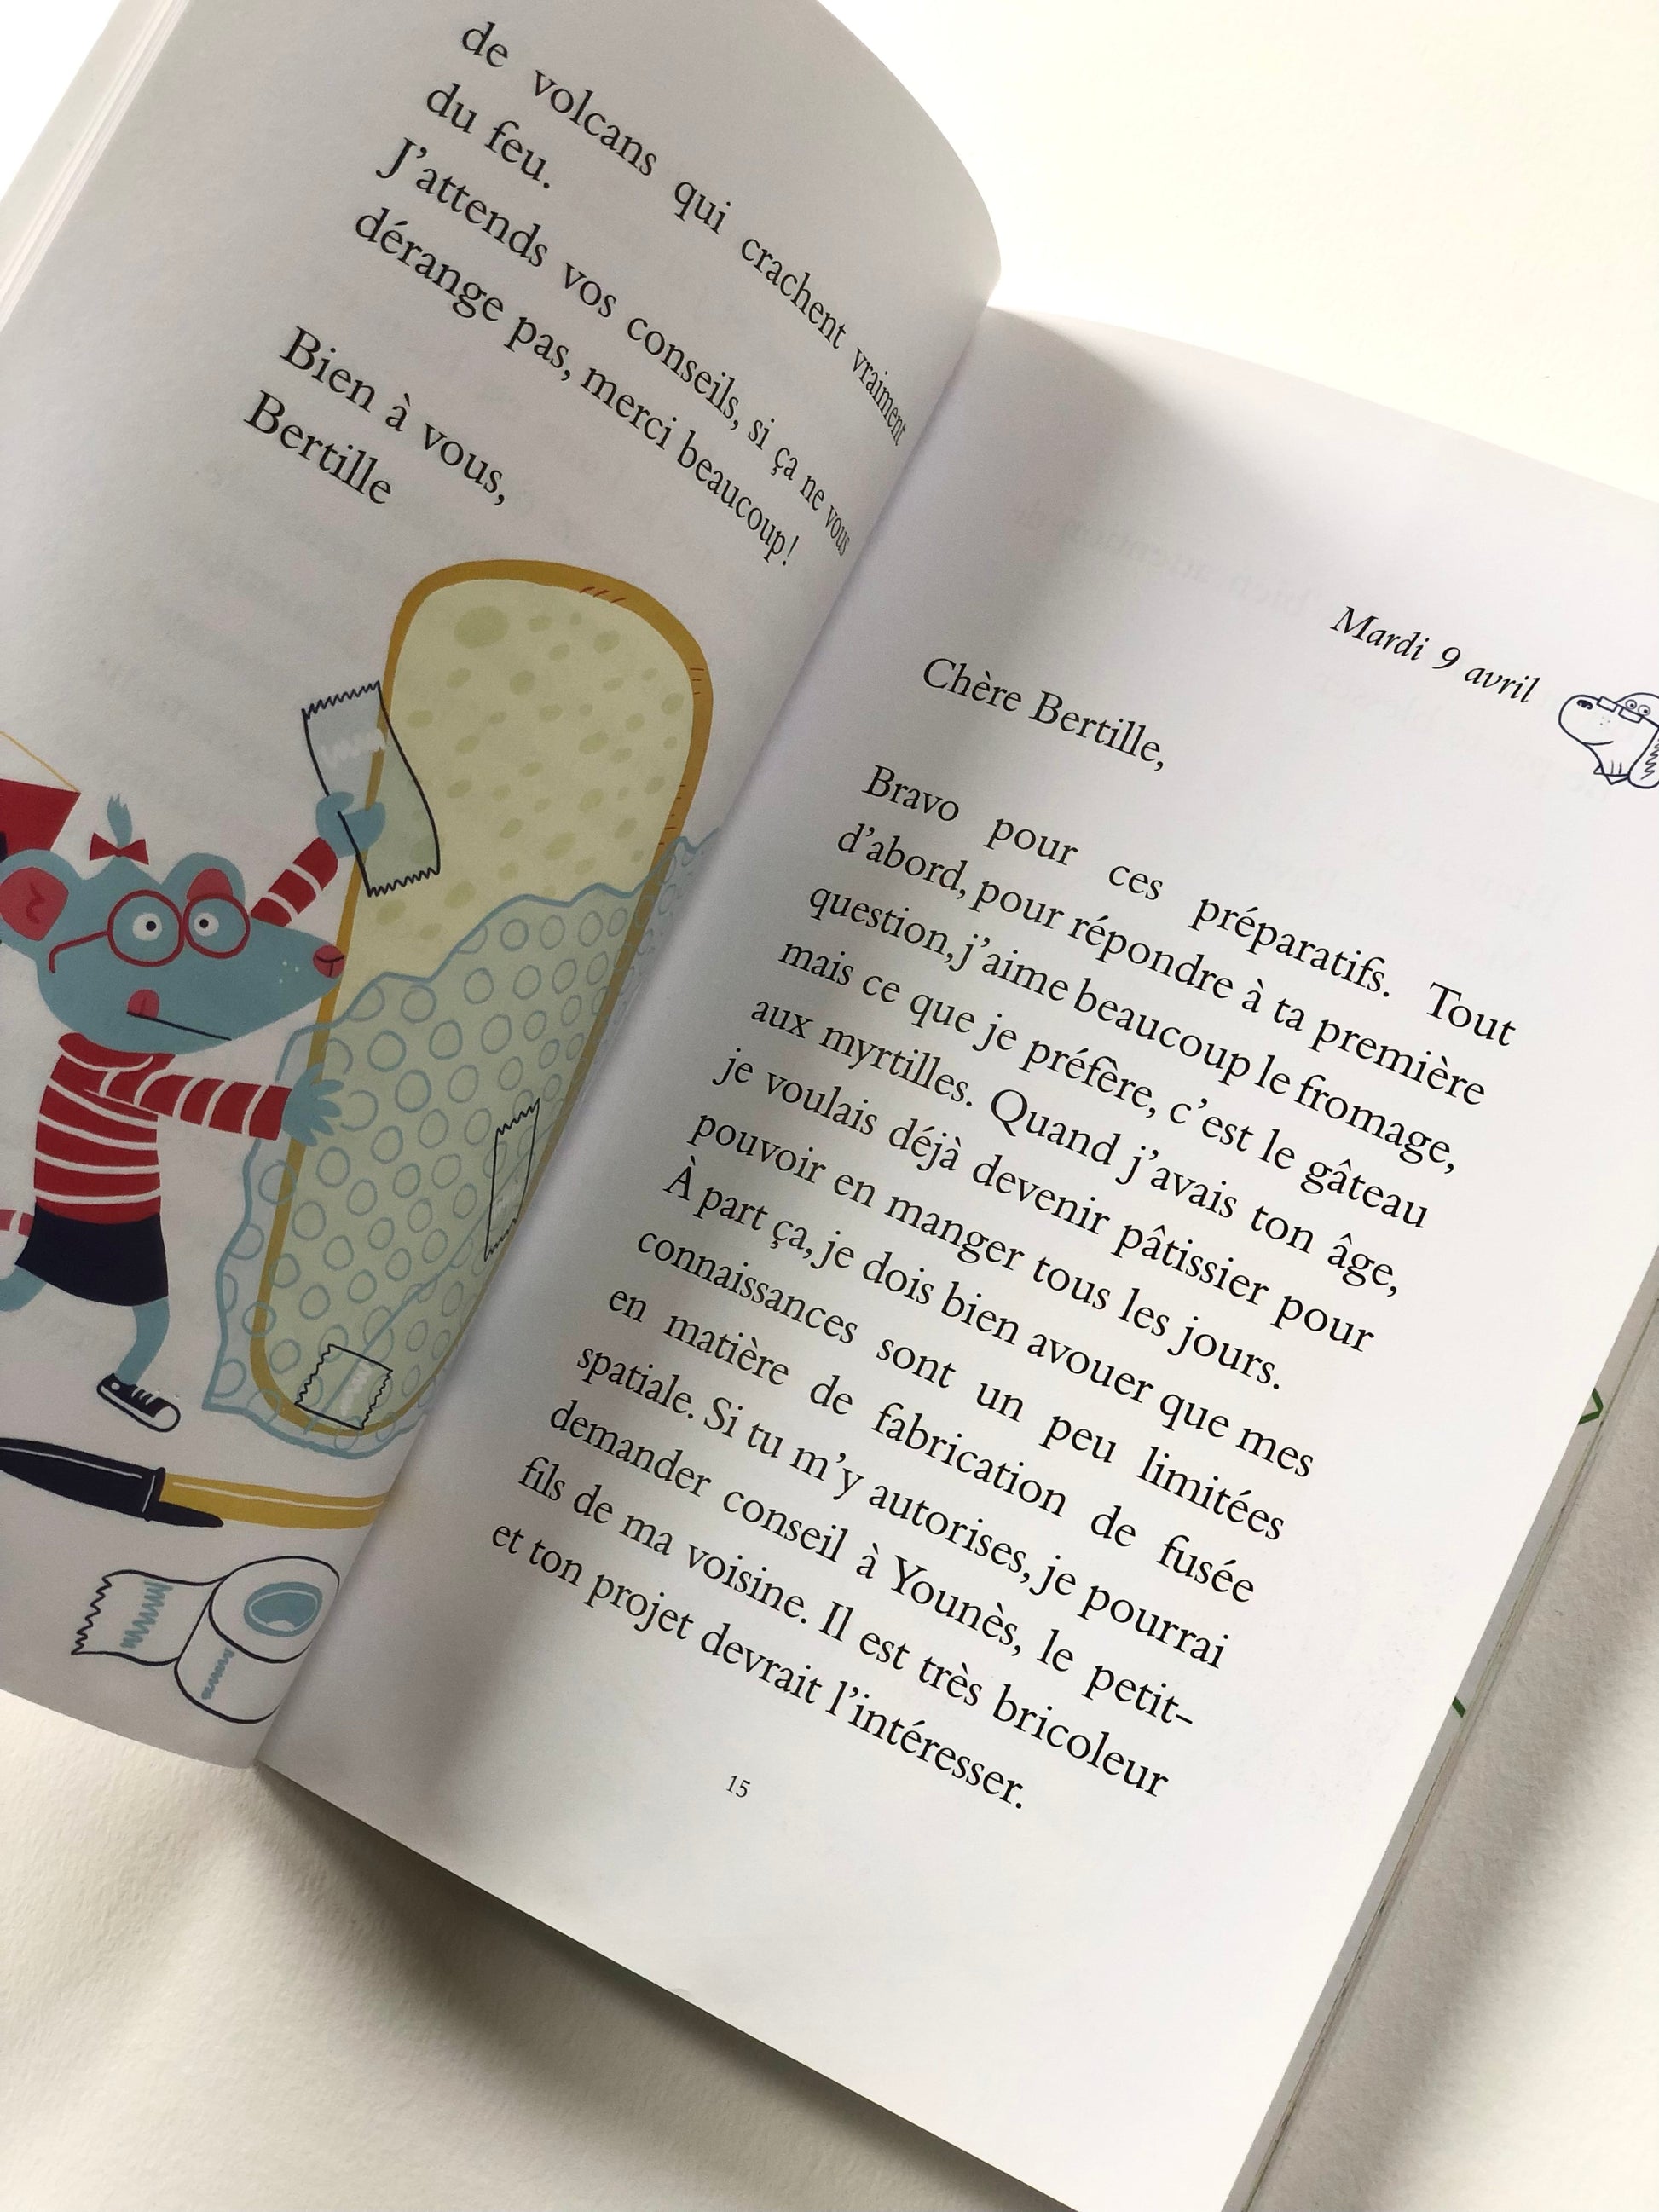 de volcans qui crachent vraiment
du feu.
J'attends vos conseils, si ça ne vous
dérange pas, merci beaucoup !
Bien à vous,
Bertille
Mardi 9 avril
Chère Bertille,
Bravo pour ces préparatifs. Tout
d'abord, pour répondre à ta première
question, j'aime beaucoup le fromage,
mais ce que je préfère, c'est le gâteau
aux myrtilles. Quand j'avais ton âge,
je voulais déjà devenir pâtissier pour
pouvoir en manger tous les jours.
À part ça, je dois bien avouer que mes
connaissances sont un peu limitées
en matière de fabrication de fusée
spatiale. Si tu m'y autorises, je pourrai
demander conseil à Younès, le petit-
fils de ma voisine. Il est très bricoleur
et ton projet devrait l'intéresser.
15